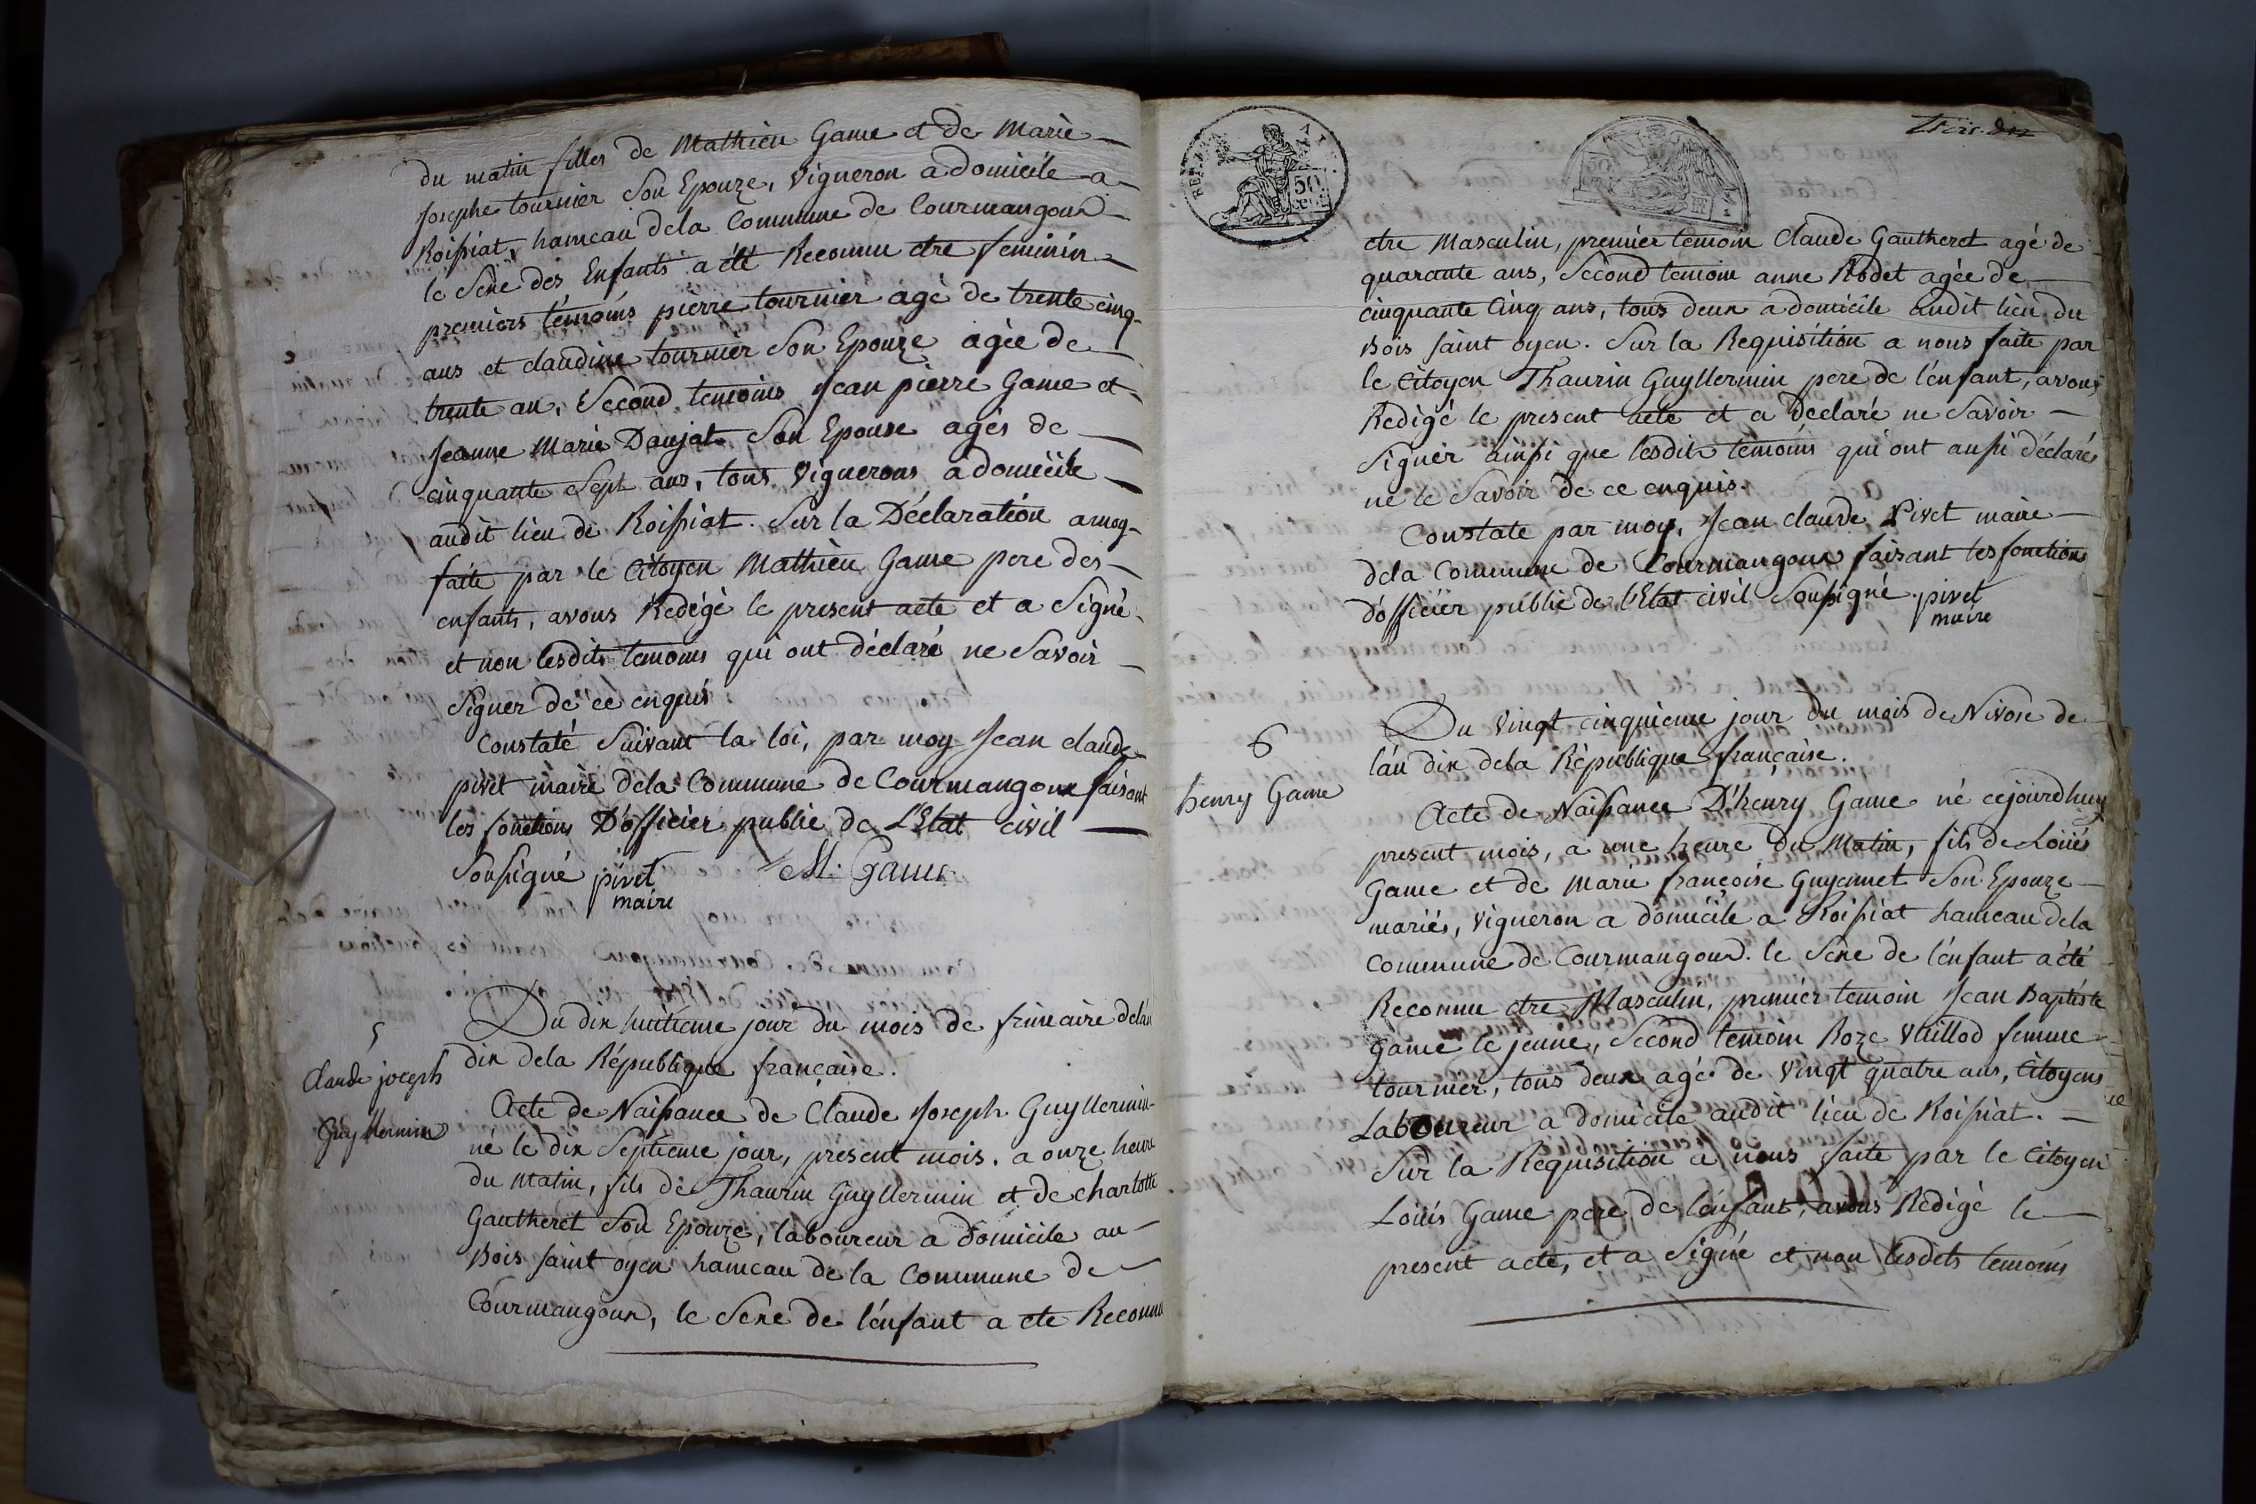 du matin filles de Mathieu Game et de Marie
josephe tournier Son Epouze, vigneron a domicile a
Roissiat, hameau dela Commune de Courmangoux
le Sexe des Enfants a été Reconnu etre feminin
premiers témoins pierre tournier agé de trente cinq
ans et claudine tournier Son Epouze agée de
trente an, Second temoins Jean pierre Game et
Jeanne Marie Daujat Son Epouse agés de
cinquante Sept ans, tous Vignerons a domicile
audit lieu de Roissiat. Sur la Déclaration a moy
faite par le Citoyen Mathieu Game pere des
enfants, avons Redigé le present acte et a Signé
et non lesdits temoins qui ont déclaré ne Savoir
Signer de ce enquis
Constaté Suivant la loi, par moy Jean claude
pivet maire dela Commune de Courmangoux faisant
les fonctions D'officier public de L'Etat civil
Soussigné pivet M. Game
maire
5
Claude joseph
Guyllermin
Du dix huitieme jour du mois de frimaire delan
dix dela République française.
Acte de Naissance de Claude Joseph Guyllermin
né le dix Septieme jour, présent mois. a onze heure
du Matin, fils de Thaurin Guyllermin et de charlotte
Gautheret Son Epouze, laboureur a domicile au
Bois saint oyen hameau de la Commune de
Courmangoux, le Sexe de l'enfant a ete Reconnu
REP. FRA.
50
etre Masculin, premier temoin Claude Gautheret agé de
quarante ans, Second temoin anne Rodet agée de
cinquante Cinq ans, tous deux a domicile audit lieu du
Bois saint oyen. Sur la Requisition a nous faite par
le Citoyen Thaurin Guyllermin pere de l'enfant, avons
Redigé le present acte et a declaré ne Savoir
Signer ainsi que lesdits temoins qui ont aussi déclarés
ne le Savoir de ce enquis.
Constate par moy, Jean claude Pivet maire
dela Commune de Courmangoux faisant les fonctions
d'officier public de l'Etat civil Soussigné. pivet
maire
6
henry Game
Du vingt cinquieme jour du mois de Nivose de
l'an dix dela République française.
Acte de Naissance D'henry Game né cejourdhuy
present mois, a une heure du Matin, fils de Loüis
Game et de Marie françoise Guyennet Son Epouze
mariés, vigneron a domicile a Roissiat hameau dela
Commune de Courmangoux. le Sexe de l'enfant a été
Reconnu etre Masculin, premier temoin Jean Baptiste
Game le jeune, Second temoin Roze Vuillod femme
tournier, tous deux agé de vingt quatre ans, Citoyens
Laboureur a domicile audit lieu de Roissiat.
Sur la Requisition a nous faite par le Citoyen
Loüis Game pere de l'enfant, avons Redigé le
present acte, et a Signé et non lesdits temoins